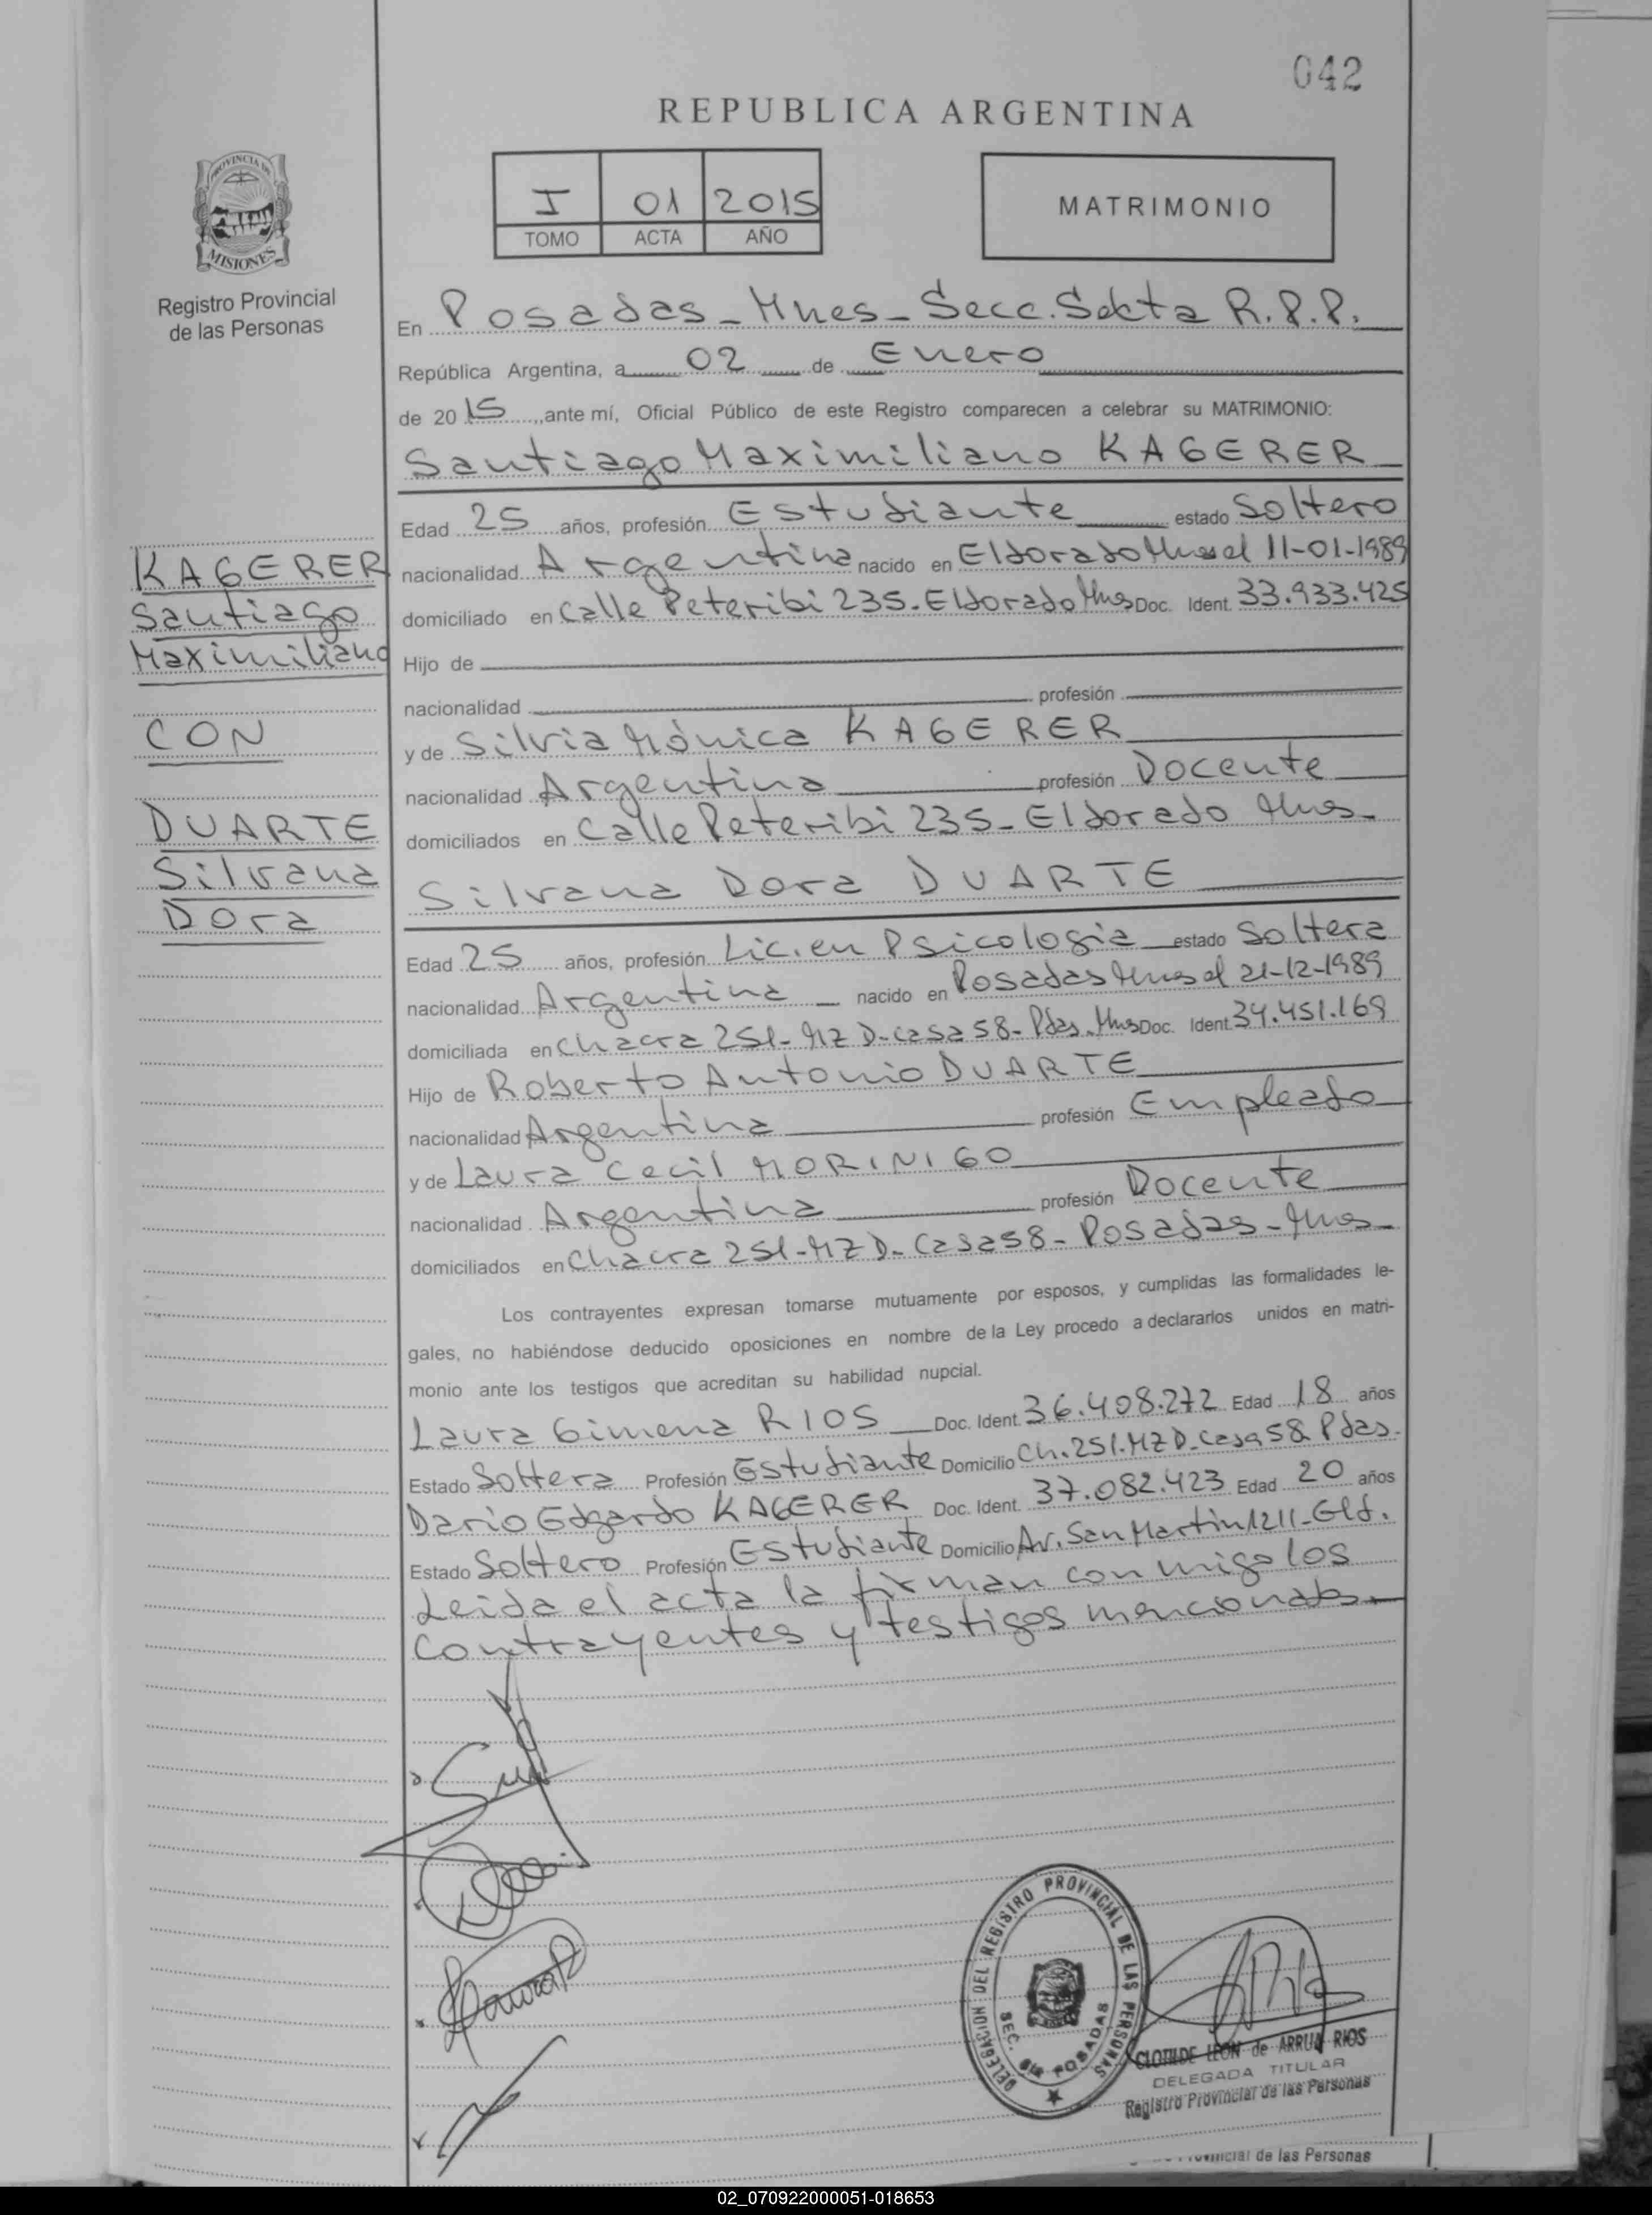 042
REPUBLICA ARGENTINA
I 01 2015
TOMO ACTA AÑO
MATRIMONIO
PROVINCIA DE
MISIONES
Registro Provincial
de las Personas
En Posadas - Mnes - Secc. Sexta R.P.P.
República Argentina, a 02 de Enero
de 2015, ante mí, Oficial Público de este Registro comparecen a celebrar su MATRIMONIO:
Santiago Maximiliano KAGERER
Edad 25 años, profesión Estudiante estado Soltero
nacionalidad Argentina nacido en Eldorado Mnes el 11-01-1989
domiciliado en Calle Peteribi 235 - Eldorado Mnes Doc. Ident. 33.933.425
Hijo de
nacionalidad profesión
y de Silvia Mónica KAGERER
nacionalidad Argentina profesión Docente
domiciliados en Calle Peteribi 235 - Eldorado Mnes -
KAGERER
Santiago
Maximiliano
CON
DUARTE
Silvana
Dora
Silvana Dora DUARTE
Edad 25 años, profesión Lic. en Psicologia estado Soltera
nacionalidad Argentina nacido en Posadas Mnes el 21-12-1989
domiciliada en Chacra 251 - MZ D - Casa 58 - Pdas. Mnes Doc. Ident. 34.451.169
Hijo de Roberto Antonio DUARTE
nacionalidad Argentina profesión Empleado
y de Laura Cecil MORINIGO
nacionalidad Argentina profesión Docente
domiciliados en Chacra 251 - MZ D - Casa 58 - Posadas - Mnes -
Los contrayentes expresan tomarse mutuamente por esposos, y cumplidas las formalidades le-
gales, no habiéndose deducido oposiciones en nombre de la Ley procedo a declararlos unidos en matri-
monio ante los testigos que acreditan su habilidad nupcial.
Laura Gimena RIOS Doc. Ident. 36.408.272 Edad 18 años
Estado Soltera Profesión Estudiante Domicilio Ch. 251. MZ D - Casa 58 Pdas.
Dario Edgardo KAGERER Doc. Ident. 37.082.423 Edad 20 años
Estado Soltero Profesión Estudiante Domicilio Av. San Martin 1211 - Eld.
Leida el acta la firman con migo los
Contrayentes y testigos mencionados.
DELEGACION DEL REGISTRO PROVINCIAL DE LAS PERSONAS
SEC. 6ta POSADAS
CLOTILDE LEON de ARRUA RIOS
DELEGADA TITULAR
Registro Provincial de las Personas
Provincial de las Personas
02_070922000051-018653